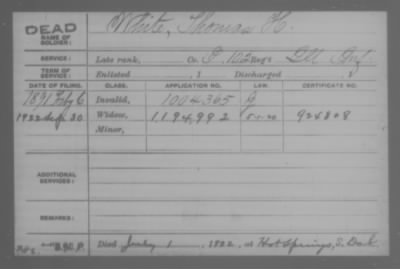 DEAD
NAME OF SOLDIER: White, Thomas H.
SERVICE: Late rank, Co. I, 102 Reg't Ill Inf.
TERM OF SERVICE: Enlisted , 1 Discharged , 1
DATE OF FILING. CLASS. APPLICATION NO. LAW.
1891 Feby 6 Invalid, 1004,365
1922 30 Widow, 1,194,992 924808
Minor,
ADDITIONAL SERVICES:
REMARKS:
Died 1, 1922, at Hot Springs, S. Dak